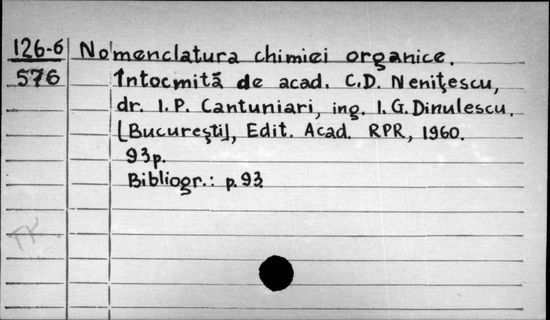 126-6 Nomenclatura chimiei organice.
576 Întocmită de acad. C.D. Neniţescu,
dr. I.P. Cantuniari, ing. I.G. Dinulescu.
[Bucureşti], Edit. Acad. RPR, 1960.
93p.
Bibliogr.: p.93
TK